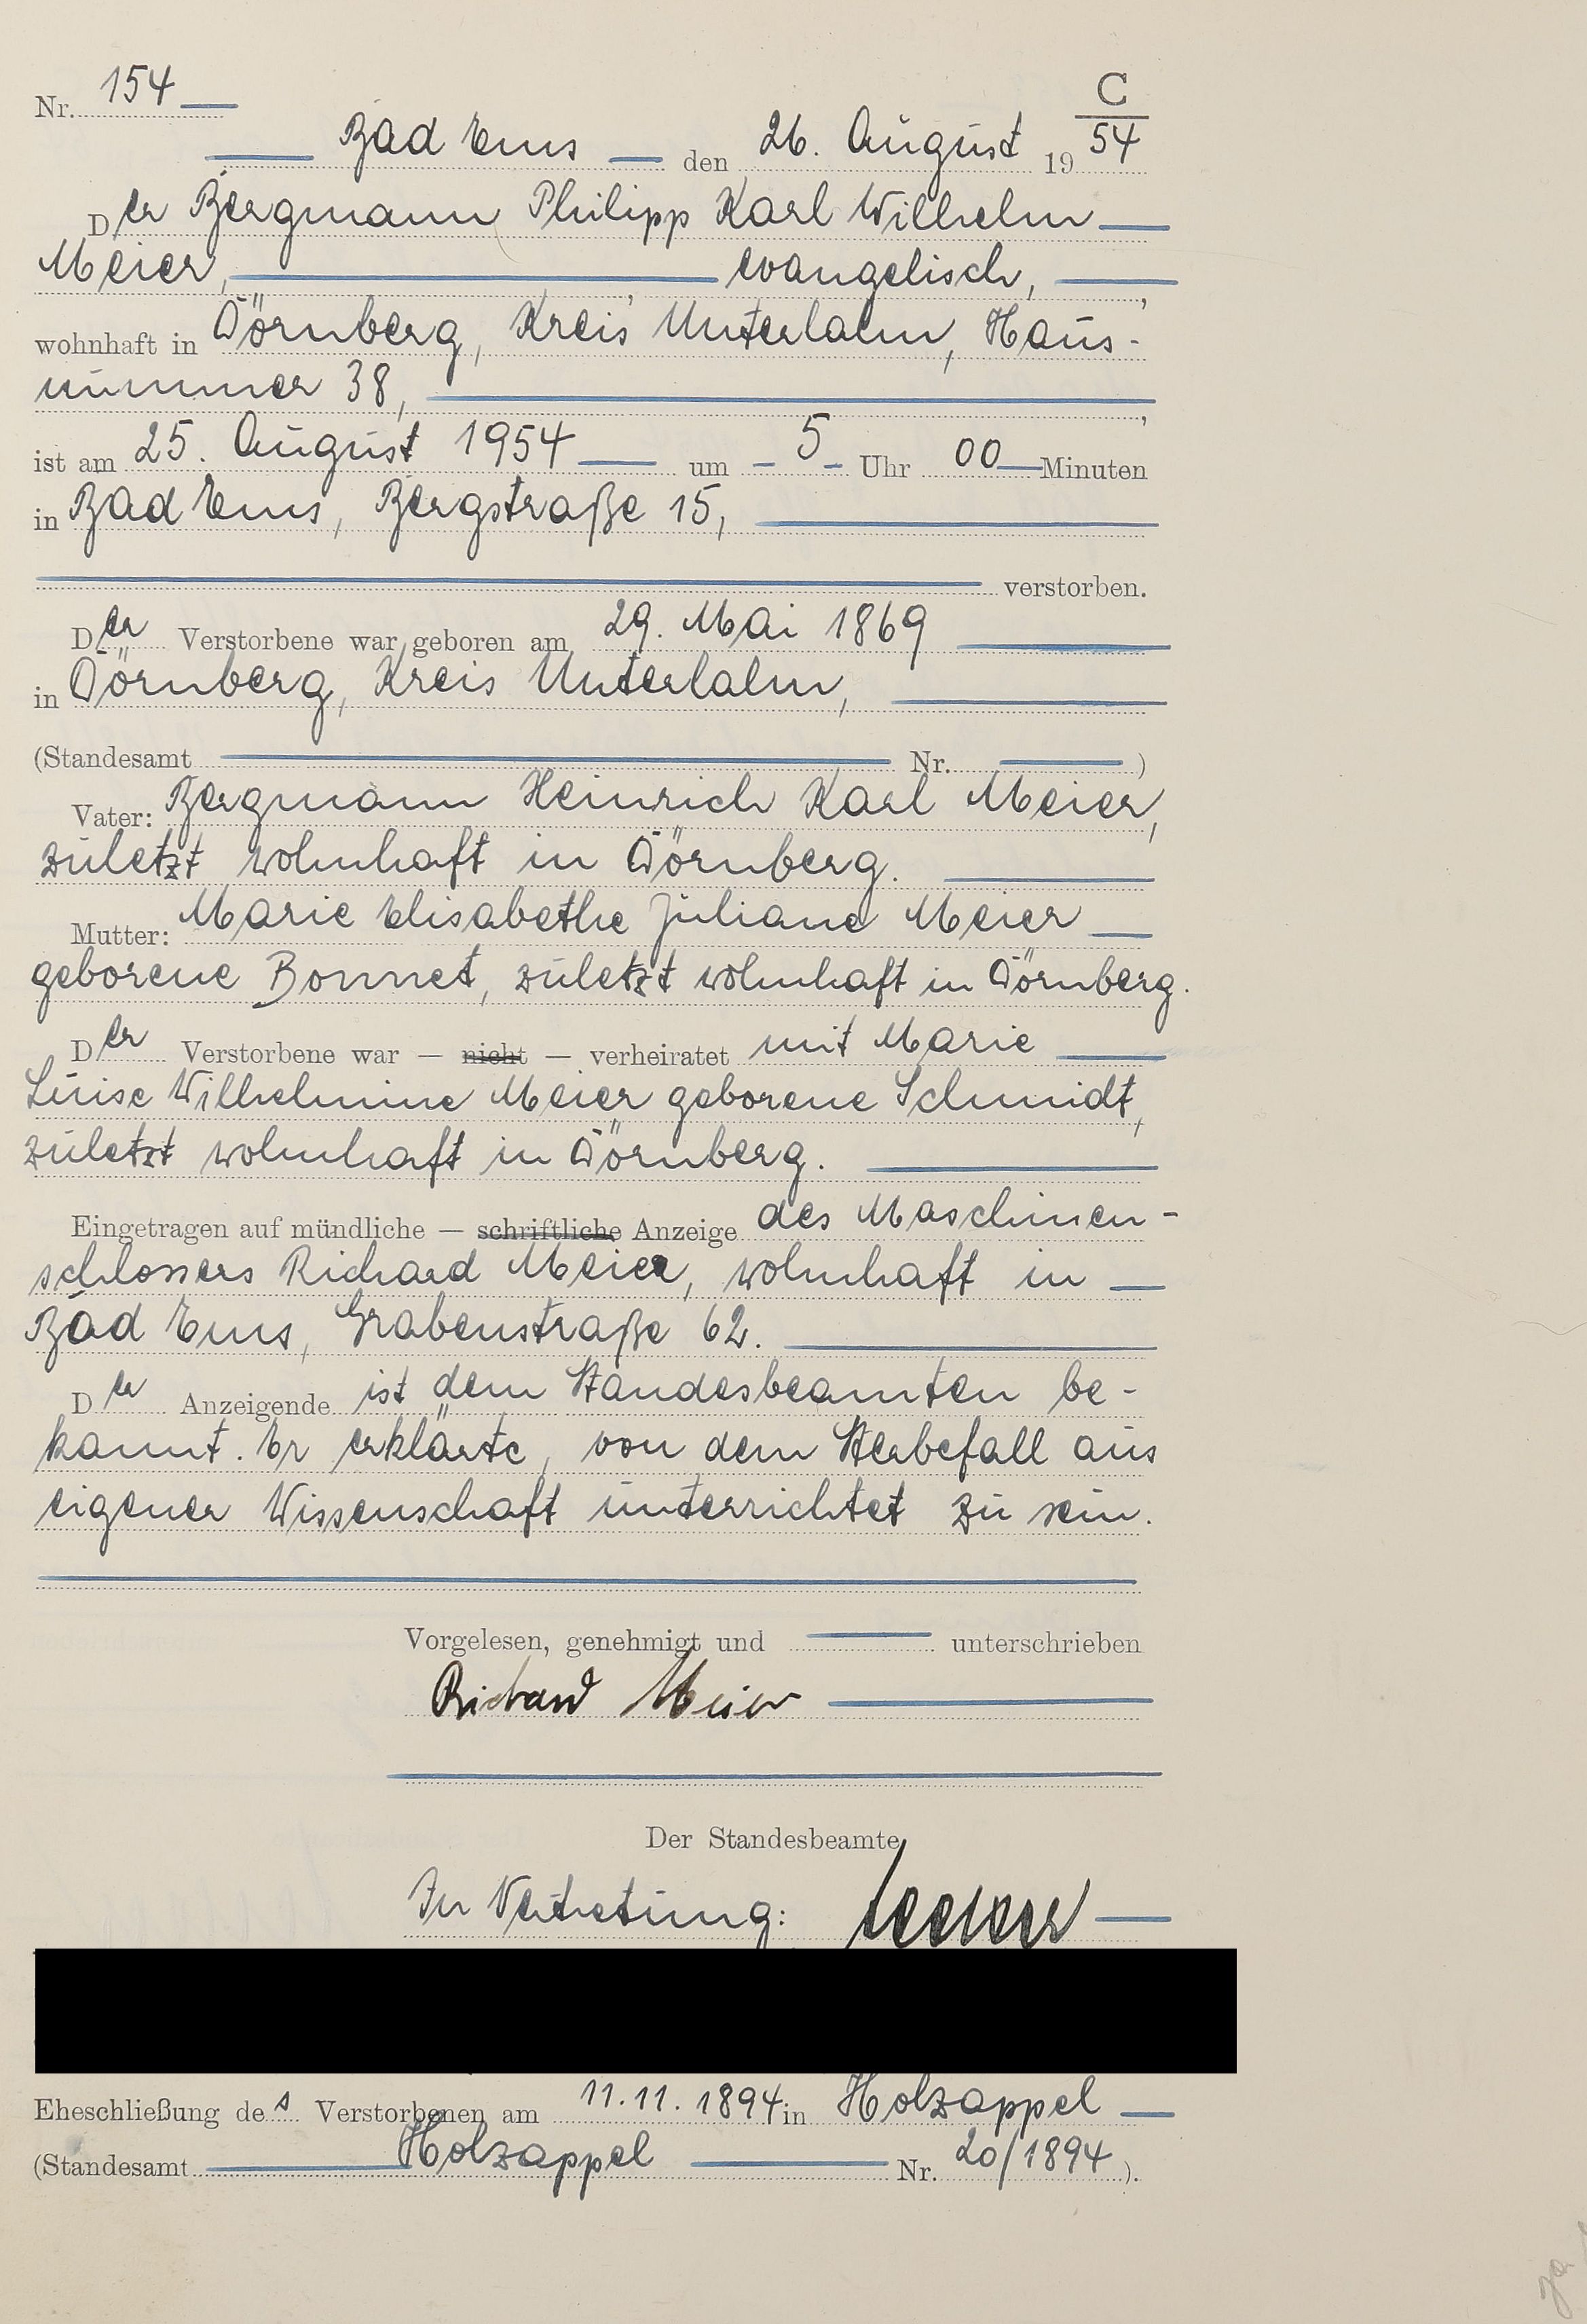 C
Nr. 154
Bad Ems den 26. August 19 54
Der Bergmann Philipp Karl Wilhelm
Meier, evangelisch,
wohnhaft in Dörnberg, Kreis Unterlahn, Haus-
nummer 38,
ist am 25. August 1954 um 5 Uhr 00 Minuten
in Bad Ems, Bergstraße 15,
verstorben.
Der Verstorbene war geboren am 29. Mai 1869
in Dörnberg, Kreis Unterlahn,
(Standesamt Nr. )
Vater: Bergmann Heinrich Karl Meier,
zuletzt wohnhaft in Dörnberg.
Mutter: Marie Elisabethe Juliane Meier
geborene Bonnet, zuletzt wohnhaft in Dörnberg.
Der Verstorbene war — nicht — verheiratet mit Marie
Luise Wilhelmine Meier geborene Schmidt,
zuletzt wohnhaft in Dörnberg.
Eingetragen auf mündliche — schriftliche Anzeige des Maschinen-
schlossers Richard Meier, wohnhaft in
Bad Ems, Grabenstraße 62.
Der Anzeigende ist dem Standesbeamten be-
kannt. Er erklärte, von dem Sterbefall aus
eigener Wissenschaft unterrichtet zu sein.
Vorgelesen, genehmigt und unterschrieben
Richard Meier
Der Standesbeamte
In Vertretung:
Eheschließung des Verstorbenen am 11.11.1894 in Holzappel
(Standesamt Holzappel Nr. 20/1894 ).